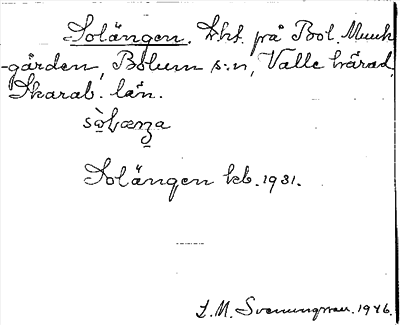 Solängen. Lht. på Bol. Munk
-gården, Bolum s:n, Valle härad,
Skarab. län.
sò̀læŋa
Solängen kb. 1931.
L. M. Svenungsson. 1946.